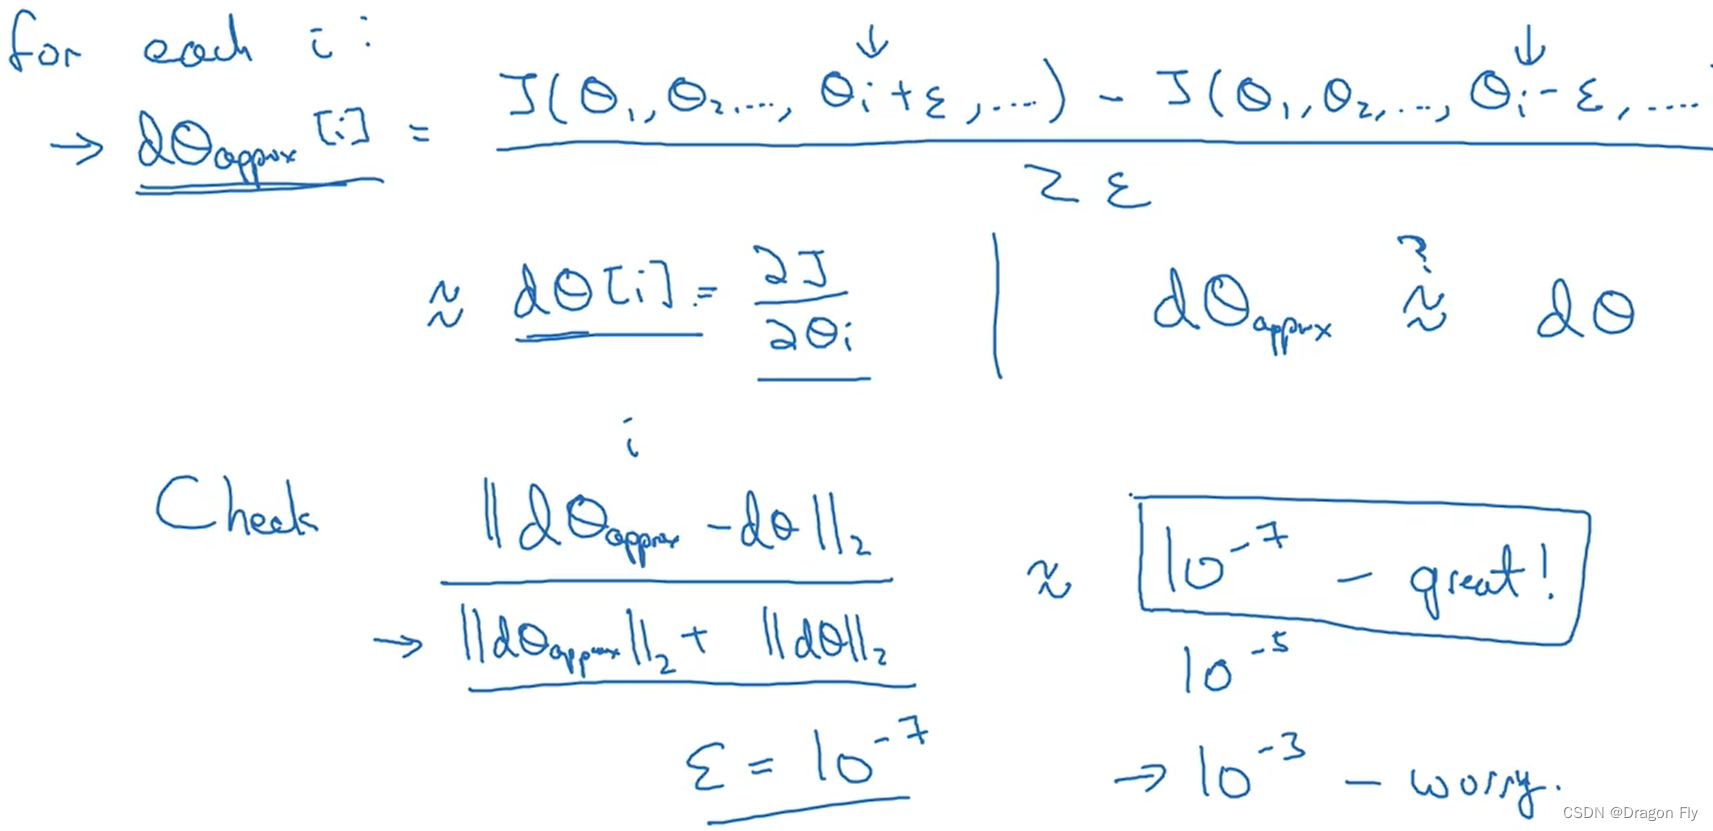 for each i :
→ dθapprox [i] = J(θ₁, θ₂, ..., θi + ε, ....) - J(θ₁, θ₂, ..., θi - ε, ....
2 ε
≈ dθ[i] = ∂J / ∂θi | dθapprox ≈? dθ
i
Check ‖dθapprox - dθ‖₂ ≈ 10⁻⁷ - great!
→ ‖dθapprox‖₂ + ‖dθ‖₂
10⁻⁵
ε = 10⁻⁷
→ 10⁻³ - worry.
CSDN @Dragon Fly